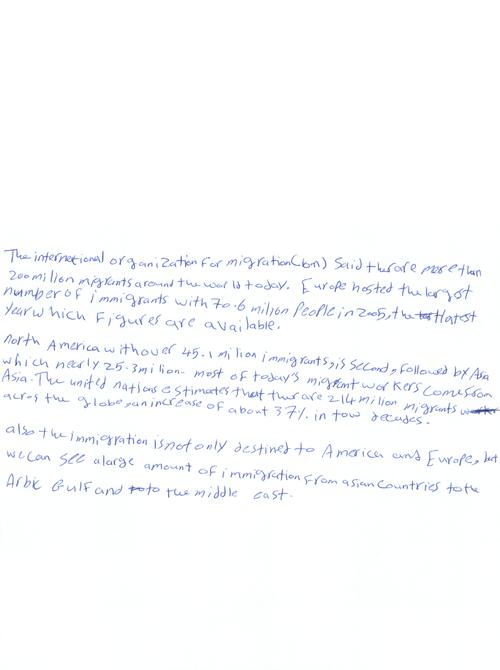 The international organization for migration (iom) said ther are more than
200 million migrants around the world today. Europe hosted the largest
number of immigrants with 70.6 milion People in 2005, the latest
year which Figures are available.
north America with over 45.1 milion immigrants, is second, followed by Asia
which nearly 25.3 milion. most of today's migrant workers come from
Asia. The united nations estimates that ther are 214 milion migrants
acros the globe, an increase of about 37% in tow decades.
also the immigration is not only destined to America and Europe, but
we can see a large amount of immigration from asian Countries to the
Arbic Gulf and to the middle east.